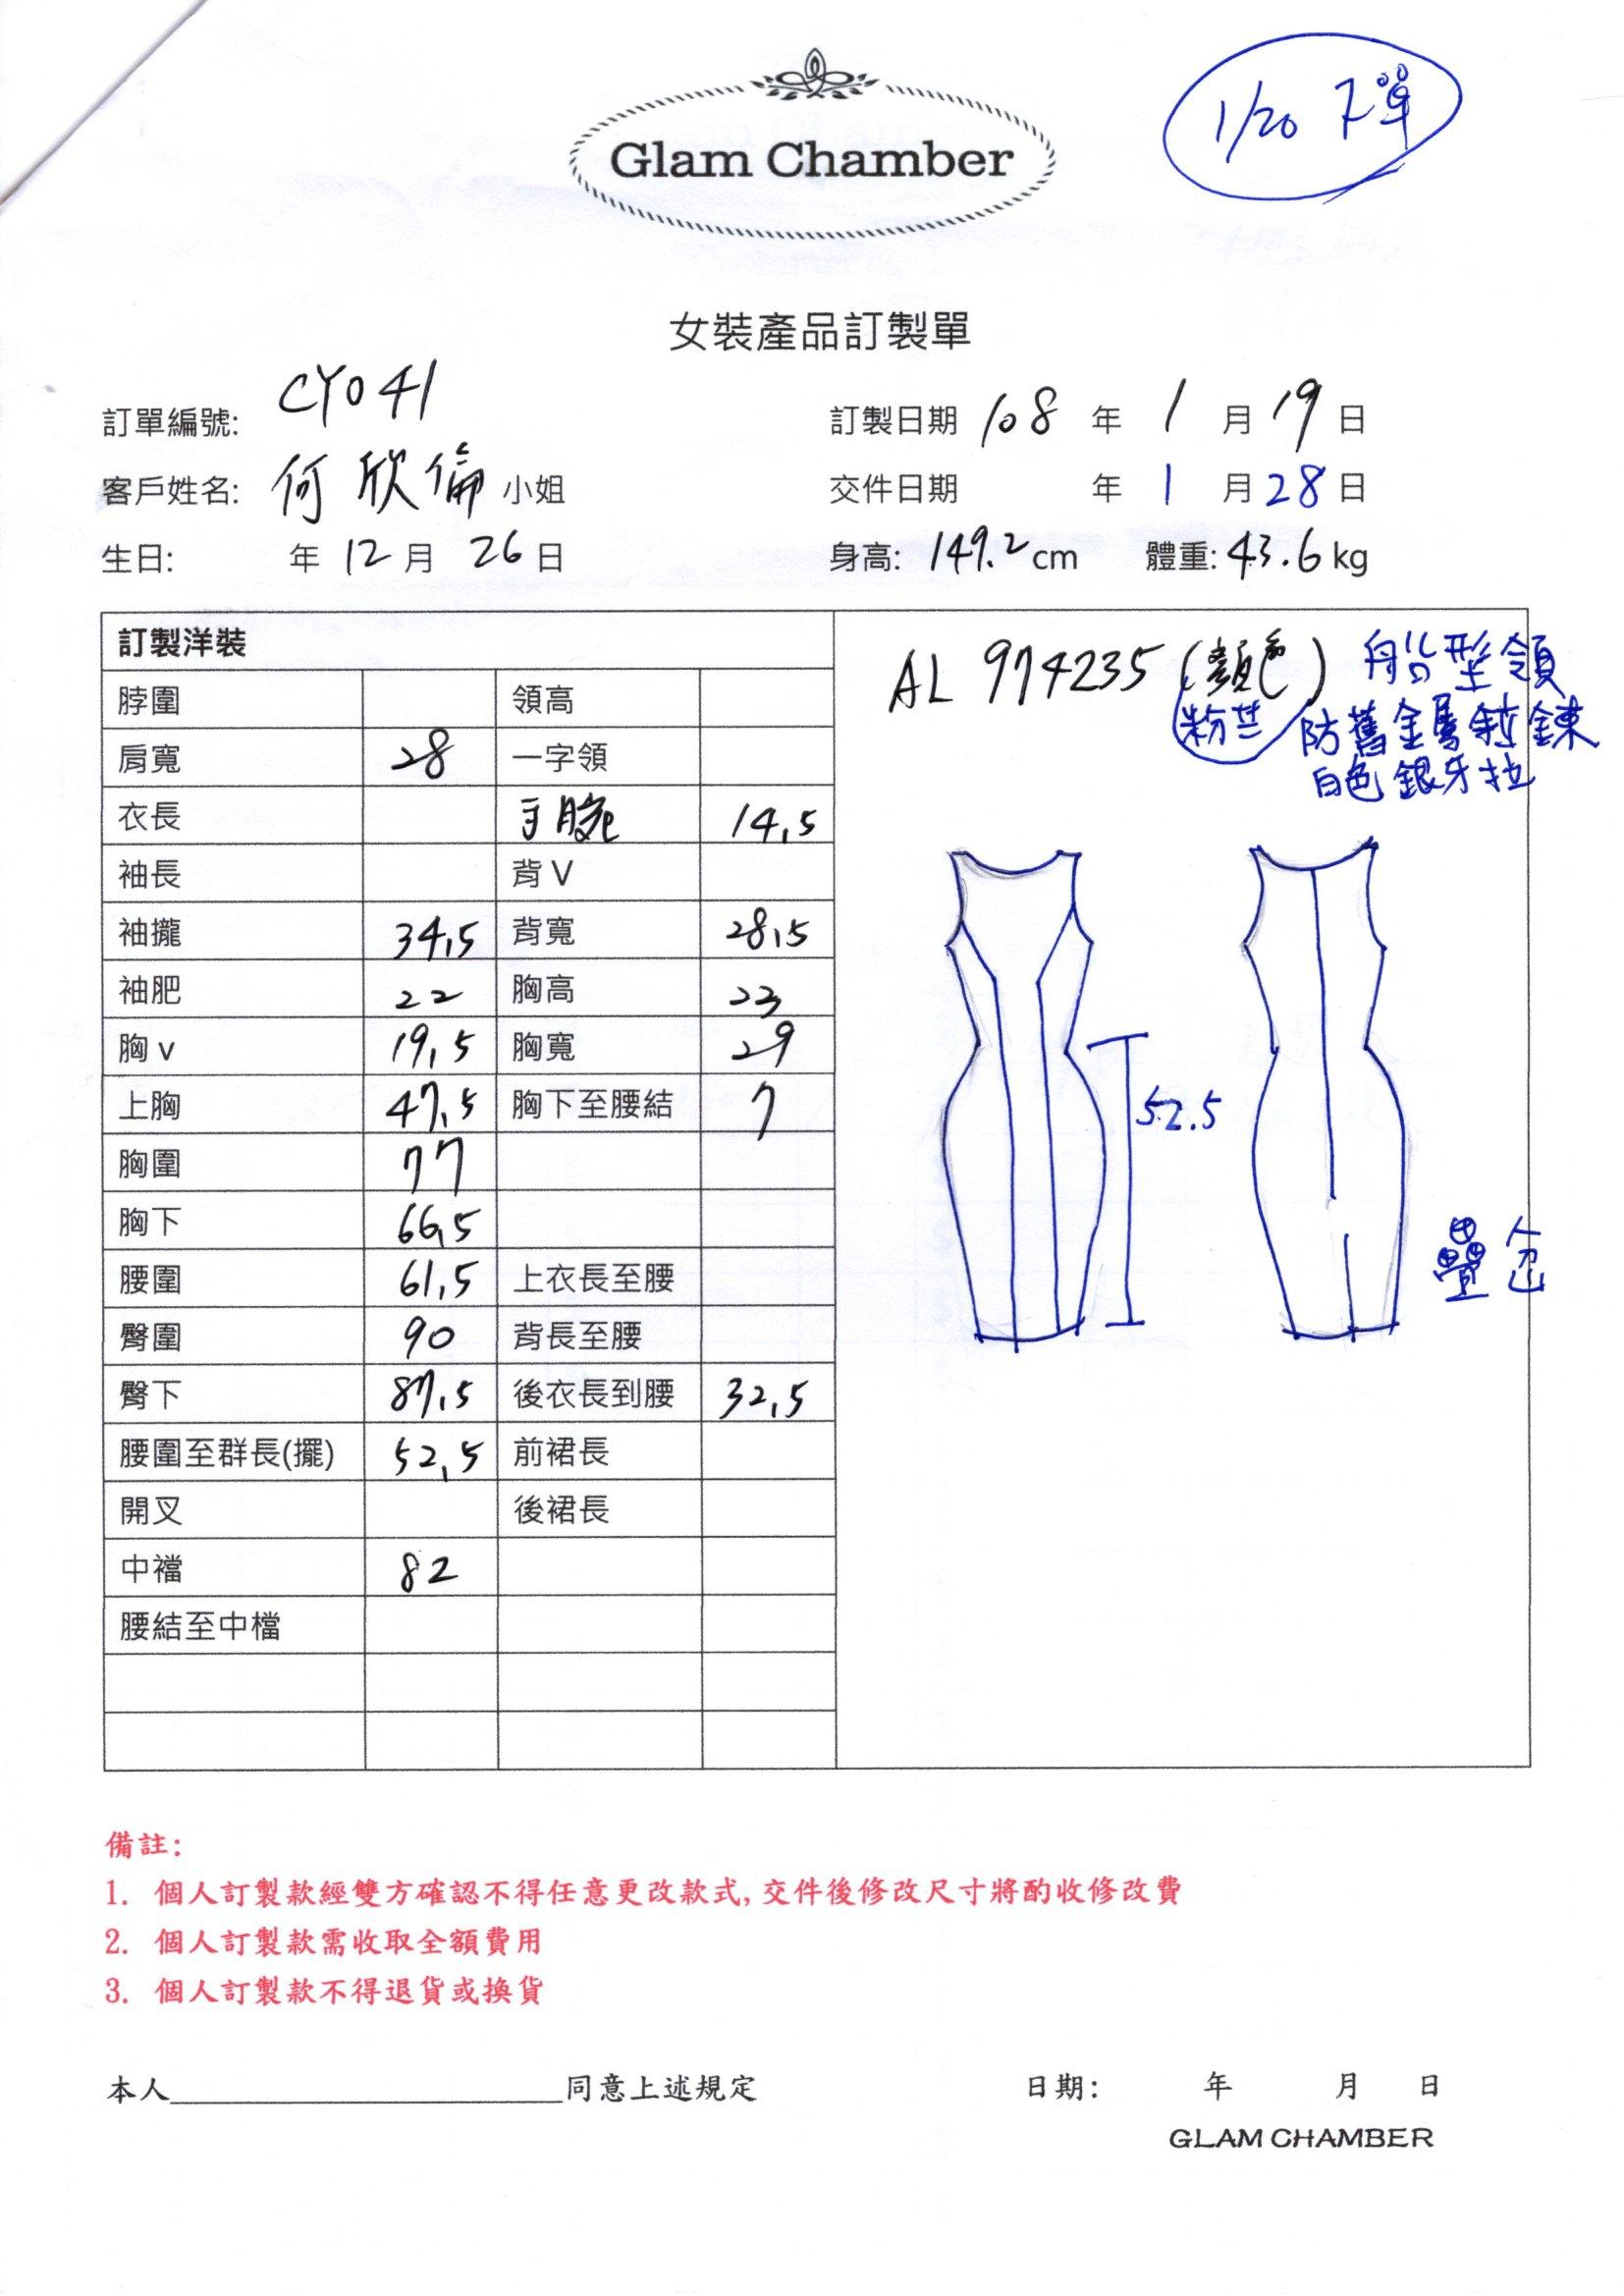 1/20 下單
Glam Chamber
女裝產品訂製單
訂單編號: CY041
訂製日期 108 年 1 月 19 日
客戶姓名: 何欣倫 小姐
交件日期 年 1 月 28 日
生日: 年 12 月 26 日
身高: 149.2 cm 體重: 43.6 kg
訂製洋裝
脖圍 領高
肩寬 28 一字領
衣長 手腕 14,5
袖長 背 V
袖攏 34,5 背寬 28,5
袖肥 22 胸高 23
胸 v 19,5 胸寬 29
上胸 47,5 胸下至腰結 7
胸圍 77
胸下 66,5
腰圍 61,5 上衣長至腰
臀圍 90 背長至腰
臀下 87,5 後衣長到腰 32,5
腰圍至群長(擺) 52,5 前裙長
開叉 後裙長
中襠 82
腰結至中檔
AL 974235 (顏色) 船型領
粉 防舊金屬拉鍊
白色銀牙拉
52.5
疊岔
備註:
1. 個人訂製款經雙方確認不得任意更改款式, 交件後修改尺寸將酌收修改費
2. 個人訂製款需收取全額費用
3. 個人訂製款不得退貨或換貨
本人____________________同意上述規定 日期: 年 月 日
GLAM CHAMBER